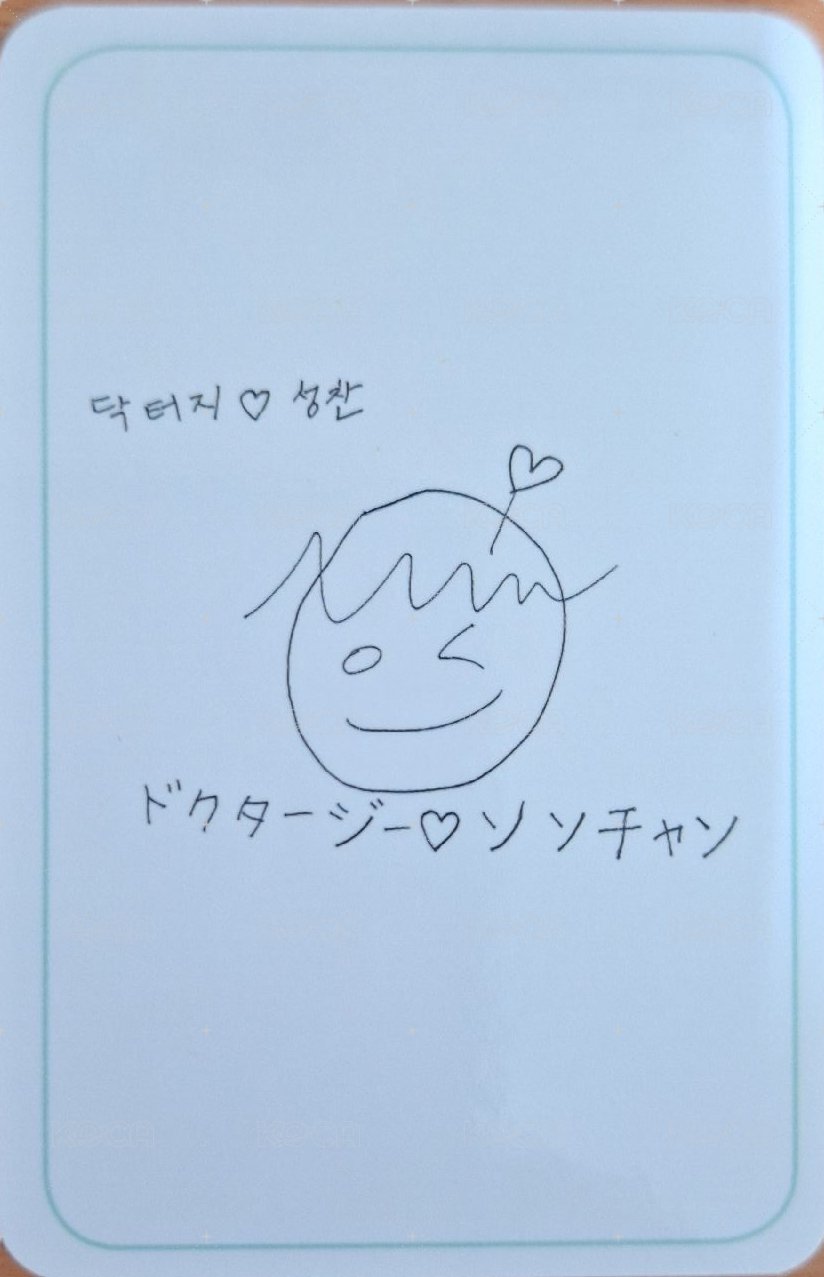 닥터지♡성찬
ドクタージー♡ソンチャン